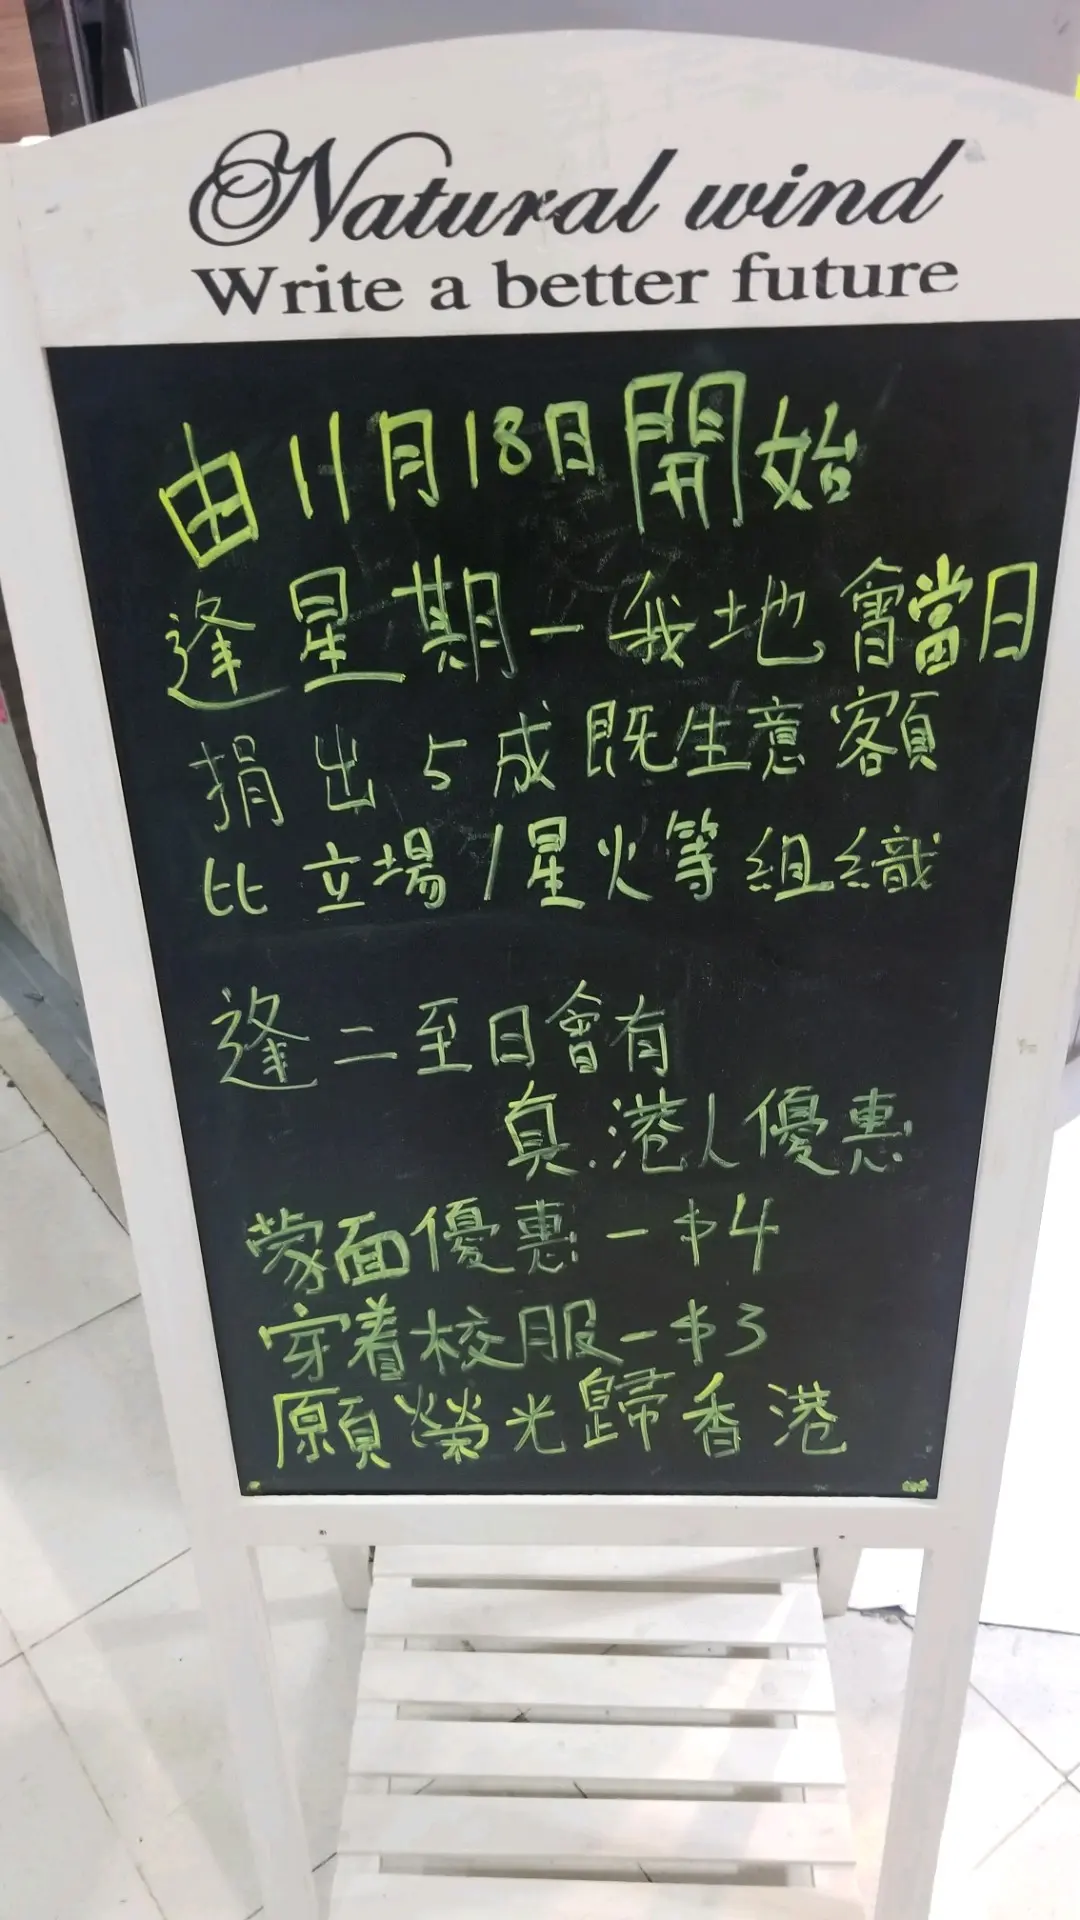 Natural wind
Write a better future
由11月18日開始
逢星期一我地會當日
捐出5成既生意額
比立場/星火等組織
逢二至日會有
真.港人優惠
蒙面優惠-$4
穿着校服-$3
願榮光歸香港